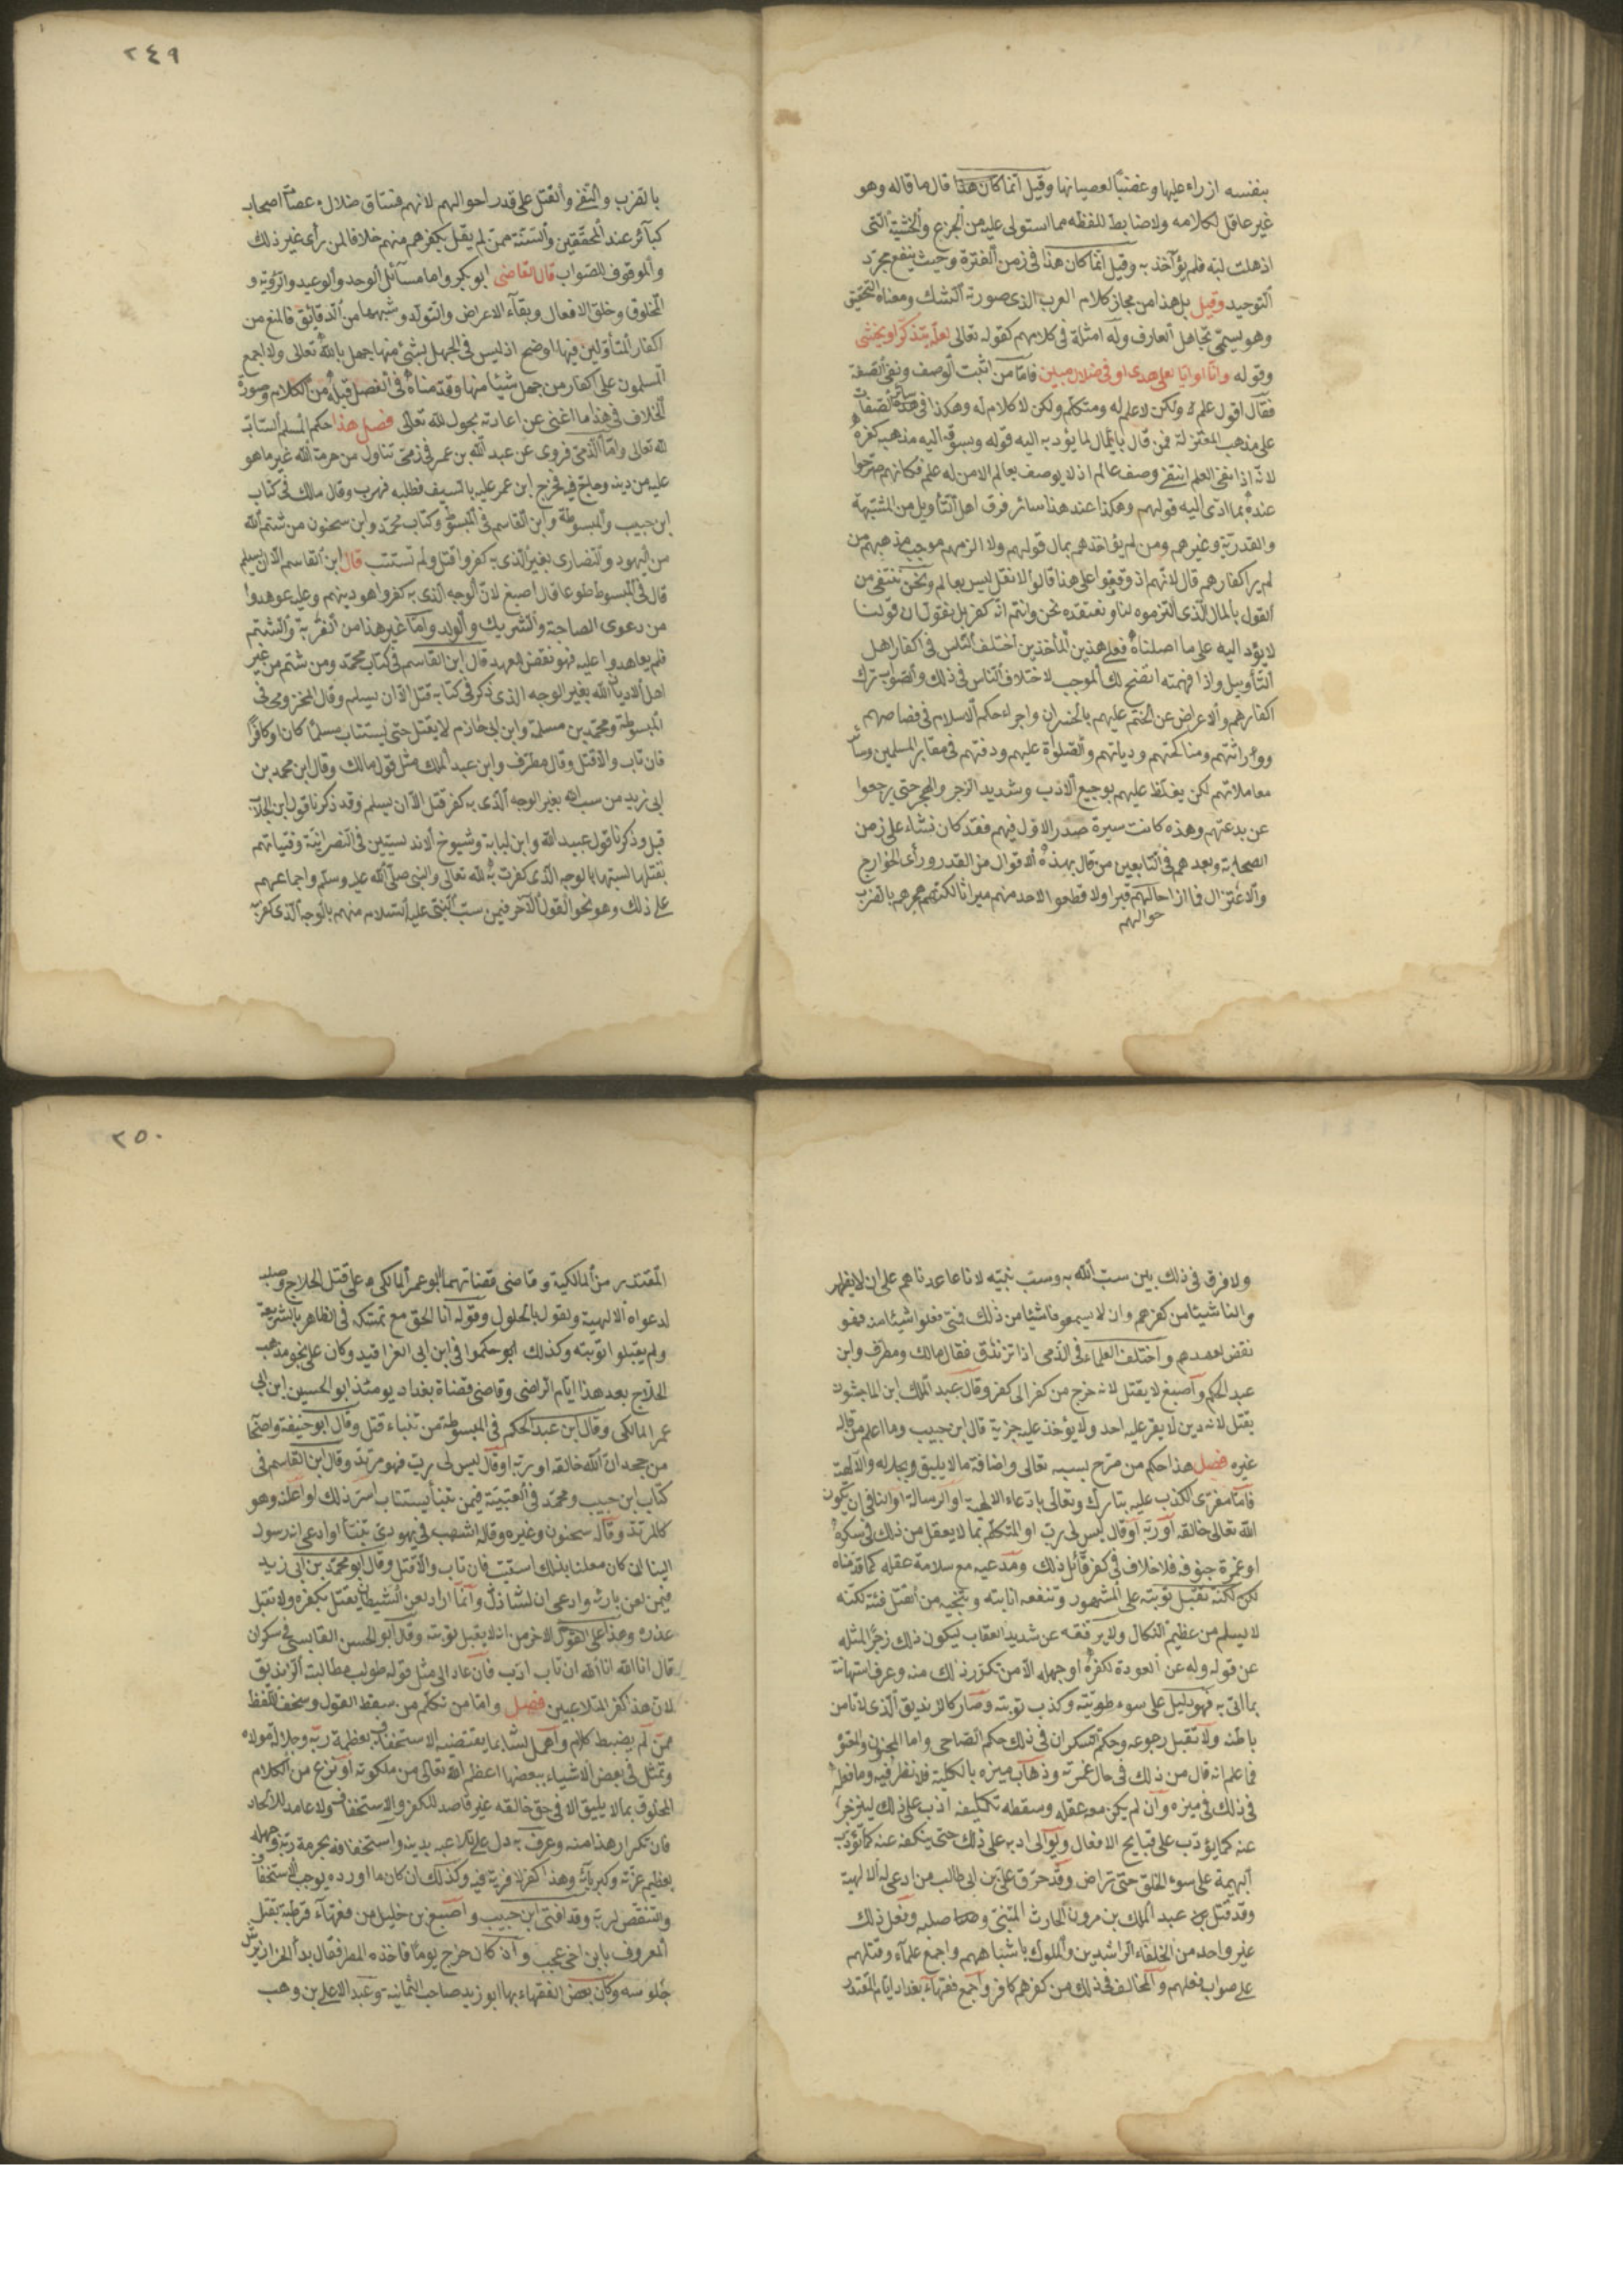 بنفسه ازراء عليها وغضبا لعصيانها وقيل انما كان هذا قال ما قاله وهو
غير عاقل لكلامه ولا ضابط للفظه مما استولى عليه من الجزع والخشية التى
اذهلت لبه فلم يؤآخذ به وقيل انما كان هذا فى زمن الفترة وحيث ينفع مجرد
التوحيد وقيل بل هذا من مجاز كلام العرب الذى صورته الشك ومعناه التحقيق
وهو يسمى تجاهل العارف وله امثلة فى كلامهم كقوله تعالى لعله يتذكر او يخشى
وقوله وانا او اياكم لعلى هدى او فى ضلال مبين فاما من اثبت الوصف ونفى الصفة
فقال اقول عالم ولكن لا علم له ومتكلم ولكن لا كلام له وهكذا فى سائر الصفات
على مذهب المعتزلة فمن قال بالمآل لما يؤديه اليه قوله ويسوقه اليه مذهبه كفره
لانه اذا نفى العلم انتفى وصف عالم اذ لا يوصف بعالم الا من له علم فكانهم صرحوا
عنده بما ادى اليه قولهم وهكذا عند هذا سائر فرق اهل التأويل من المشبهة
والقدرية وغيرهم ومن لم يؤاخذهم بمآل قولهم ولا الزمهم موجب مذهبهم من
لم ير اكفارهم قال لانهم اذ وقفوا على هذا قالوا لا نقول ليس بعالم ونحن ننتفى من
القول بالمآل الذى الزمتموه لنا ونعتقده نحن وانتم انه كفر بل نقول ان قولنا
لا يؤد اليه على ما اصلناه فعلى هذين المأخذين اختلف الناس فى اكفار اهل
التأويل واذا فهمته اتضح لك الموجب لاختلاف الناس فى ذلك والصواب ترك
اكفارهم والاعراض عن الختم عليهم بالخسران واجراء حكم الاسلام فى قصاصهم
ووراثتهم ومناكحتهم ودياتهم والصلوة عليهم ودفنهم فى مقابر المسلمين وسائر
معاملاتهم لكن يغلظ عليهم بوجيع الادب وشديد الزجر والهجر حتى يرجعوا
عن بدعتهم وهذه كانت سيرة صدر الاول فيهم فقد كان نشاء على زمن
الصحابة وبعدهم فى التابعين من قال بهذه الاقوال من القدر ورأى الخوارج
والاعتزال فما ازاحوا لهم قبرا ولا قطعوا لاحد منهم ميراثا لكنهم هجروهم بالضرب
حوالهم
٢٤٩
بالضرب والنفى والقتل على قدر احوالهم لانهم فساق ضلال عصاة اصحاب
كبآئر عند المحققين والسنة ممن لم يقل بكفرهم منهم خلافا لمن رأى غير ذلك
والموفق للصواب قال القاضى ابو بكر واما مسآئل الوعد والوعيد والرؤية و
المخلوق وخلق الافعال وبقآء الاعراض والتولد وشبهها من الدقايق فالمنع من
اكفار المتأولين فيها اوضح اذ ليس فى الجهل بشئ منها جهل بالله تعالى ولا اجمع
المسلمون على اكفار من جهل شيئا منها وقدمناه فى الفصل قبله من الكلام وصورة
الخلاف فى هذا ما اغنى عن اعادته بحول لله تعالى فصل هذا حكم المسلم الساب
لله تعالى واما الذمى فروى عن عبد الله بن عمر فى ذمى تناول من حرمة الله غير ما هو
عليه من دينه وحاج فيه فخرج ابن عمر عليه بالسيف فطلبه فهرب وقال مالك فى كتاب
ابن حبيب والمبسوطة وابن القاسم فى المبسوط وكتاب محمد وابن سحنون من شتم الله
من اليهود والنصارى بغير الذى به كفروا قتل ولم تستتب قال ابن القاسم الا ان يسلم
قال فى المبسوط طوعا قال اصبغ لان الوجه الذى به كفروا هو دينهم وعليه عوهدوا
من دعوى الصاحبة والشريك والولد واما غير هذا من الفرية والشتم
فلم يعاهدوا عليه فهو نقض للعهد قال ابن القاسم فى كتاب محمد ومن شتم من غير
اهل الاديان الله بغير الوجه الذى ذكر فى كتابه قتل الا ان يسلم وقال المخزومى فى
المبسوطة ومحمد بن مسلمة وابن ابى حازم لا يقتل حتى يستتاب مسلما كان او كافرا
فان تاب والا قتل وقال مطرف وابن عبد الملك مثل قول مالك وقال ابن محمد بن
ابى زيد من سب الله بغير الوجه الذى به كفر قتل الا ان يسلم وقد ذكرنا قول ابن الجلاب
قبل وذكرنا قول عبيد الله وابن لبابة وشيوخ الاندلسيين فى النصرانية وفتياهم
بقتلها لسبها بالوجه الذى كفرت به لله تعالى والنبى صلى الله عليه وسلم واجماعهم
على ذلك وهو نحو القول الآخر فيمن سب النبى عليه السلام منهم بالوجه الذى كفر به
ولا فرق فى ذلك بين سب الله به وسب نبيه لانا عاهدناهم على ان لا يظهر
والنا شيئا من كفرهم وان لا يسمعونا شيئا من ذلك فمتى فعلوا شيئا منه فهو
نقض لعهدهم واختلف العلماء فى الذمى اذا تزندق فقال مالك ومطرف وابن
عبد الحكم واصبغ لا يقتل لانه خرج من كفر الى كفر وقال عبد الملك ابن الماجشون
يقتل لانه دين لا يقر عليه احد ولا يؤخذ عليه جزية قال ابن حبيب وما اعلم من قاله
غيره فصل هذا حكم من صرح بسبه تعالى واضافة ما لا يليق وبجلاله والآلهيته
فاما مفترى الكذب عليه تبارك وتعالى بادعاء الالهية او الرسالة او النافى ان تكون
الله تعالى خالقه او ربه او قال ليس لى رب او المتكلم بما لا يعقل من ذلك فى سكره
او غمرة جنونه فلا خلاف فى كفر قآئل ذلك ومدعيه مع سلامة عقله كما قدمناه
لكن لكنه تقبل توبته على المشهور وتنفعه انابته وتنجيه من القتل فئته لكنه
لا يسلم من عظيم النكال ولا يرفقه عن شديد العقاب ليكون ذلك زجرا لمثله
عن قوله وله عن العودة لكفره او جهله الا من تكرر ذلك منه وعرف استهانته
بما اتى به فهو دليل على سوء طويته وكذب توبته وصار كالزنديق الذى لا نامن
باطنه ولا تقبل رجوعه وحكم السكران فى ذلك حكم الصاحى واما المجنون والمعتوه
فما علم انه قال من ذلك فى حال غمرته وذهاب ميزه بالكلية فلا نظر فيه وما فعله
فى ذلك فى ميزه وان لم يكن معه عقله وسقطه تكليفه ادب على ذلك لينزجر
عنه كما يؤدب على قبايح الافعال ويوالى ادبه على ذلك حتى ينكفه عنه كما تؤدب
البهيمة على سوء الخلق حتى تراض وقد حرق على بن ابى طالب من ادعى له الالهية
وقد قتل عبد الملك بن مرون الحارث المتنبى وصلبه وفعل ذلك
غير واحد من الخلفاء الراشدين والملوك باشباههم واجمع علمآء وقتلهم
على صواب فعلهم والمخالف فى ذلك من كفرهم كافر واجمع فقهاء بغداد ايام المقتدر
٢٥٠
المقتدر من المالكية وقاضى قضاتهما ابو عمر المالكى على قتل الحلاج وصلبه
لدعواه الالهية ولقول بالحلول وقوله انا الحق مع تمسكه فى الظاهر بالشريعة
ولم يقبلوا توبته وكذلك ابو حكموا فى ابن ابى الغرا قيد وكان على نحو مذهب
الحلاج بعد هذا ايام الراضى وقاضى قضاة بغداد يومئذ ابو الحسين ابن ابى
عمر المالكى وقال ابن عبد الحكم فى المبسوطة من تنباء قتل وقال ابو حنيفة واصحابه
من جحد ان الله خالقه او ربه او قال ليس لى رب فهو مرتد وقال ابن القاسم فى
كتاب ابن حبيب ومحمد فى العتبية فيمن تنبأ يستتاب اسر ذلك او اعلنه وهو
كالمرتد وقاله سحنون وغيره وقاله اشهب فى يهودى تنبأ او ادعى انه رسول
الينا ان كان معلنا بذلك استتيب فان تاب والا قتل وقال ابو محمد بن ابى زيد
فيمن لعن بارئه وادعى ان لسانه زل وانما اراد لعن الشيطان يقتل بكفره ولا تقبل
عذره وهذا على القول الآخر من انه لا يقبل توبته وقال ابو الحسن القابسى فى سكران
قال انا الله انا الله ان تاب ادب فان عاد الى مثل قوله طولب مطالبة الزنديق
لان هذا كفر المتلاعبين فصل واما من تكلم من سقط القول وسخف اللفظ
ممن لم يضبط كلامه واهمل لسانه بما يقتضى الاستخفاف بعظمة ربه وجلالة مولاه
وتمثل فى بعض الاشياء ببعض ما اعظم الله تعالى من ملكوته او نزع من الكلام
المخلوق بما لا يليق الا فى حق خالقه غير قاصد للكفر والاستخفاف ولا عامد للالحاد
فان تكرار هذا منه وعرف به دل على تلاعبه بدينه واستخفافه بحرمة ربه وجهله
بعظيم عزته وكبريائه وهذا كفر لا مرية فيه وكذلك ان كان ما اورده يوجب الاستخفاف
والتنقص لربه وقد افتى ابن حبيب واصبغ بن خليل من فقهآء قرطبة بقتل
المعروف بابن اخى عجب واذ كان خرج يوما فاخذه المطر فقال بدأ الخراز يرش
جلوسه وكان بعض الفقهاء بها ابو زيد صاحب الثمانية وعبد الاعلى بن وهب